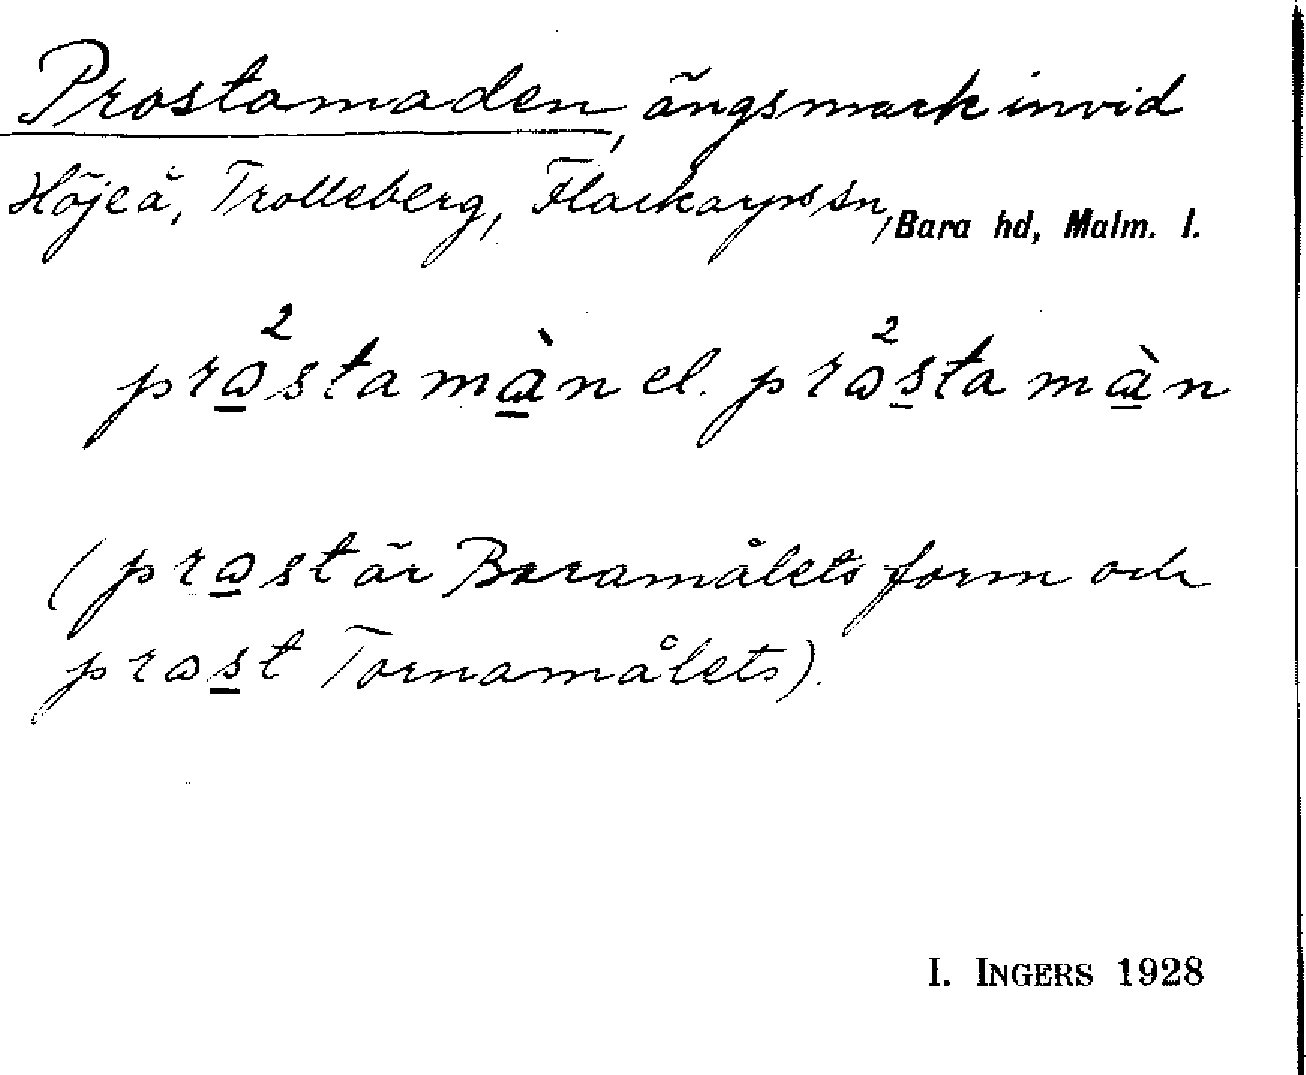 Prostamaden, ängsmark invid
Höjeå, Trolleberg, Flackarps sn, Bara hd, Malm. l.
prɷ²stamàn el. prɷ²stamàn
(prɷst är Baramålets form och
prɷst Tornamålets).
I. INGERS 1928